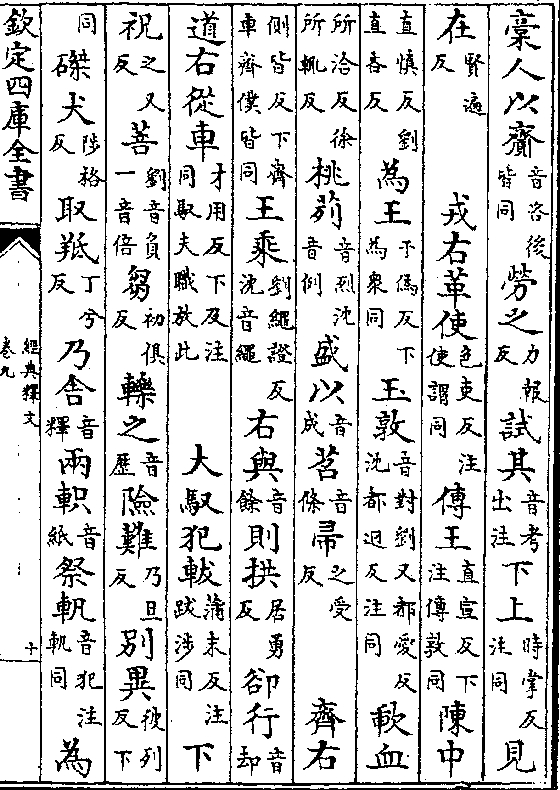 稾人以齎音咨後皆同勞之力報反試其音考出注下上時掌反注同見
在賢遍反戎右革使色吏反注使謂同傳王直宣反下注傳敦同陳中
直慎反劉直春反為王于偽反下為衆同玉敦音對劉又都愛反沈都迴反注同歃血
所洽反徐所輒反桃茢音烈沈音例盛以音成苕音條帚之受反齊右
側皆反下齊車齊僕皆同王乘劉繩證反沈音繩右與音餘則拱居勇反卻行音却
道右從車才用反下及注同馭夫職放此大馭犯軷蒲末反注跋涉同下
祝之又反菩劉音負一音倍芻初俱反轢之音歷險難乃旦反別異彼列反下
同磔犬陟格反取羝丁兮反乃舍音釋兩軹音紙祭軓音犯注軓同為
欽定四庫全書
經典釋文
卷九
十